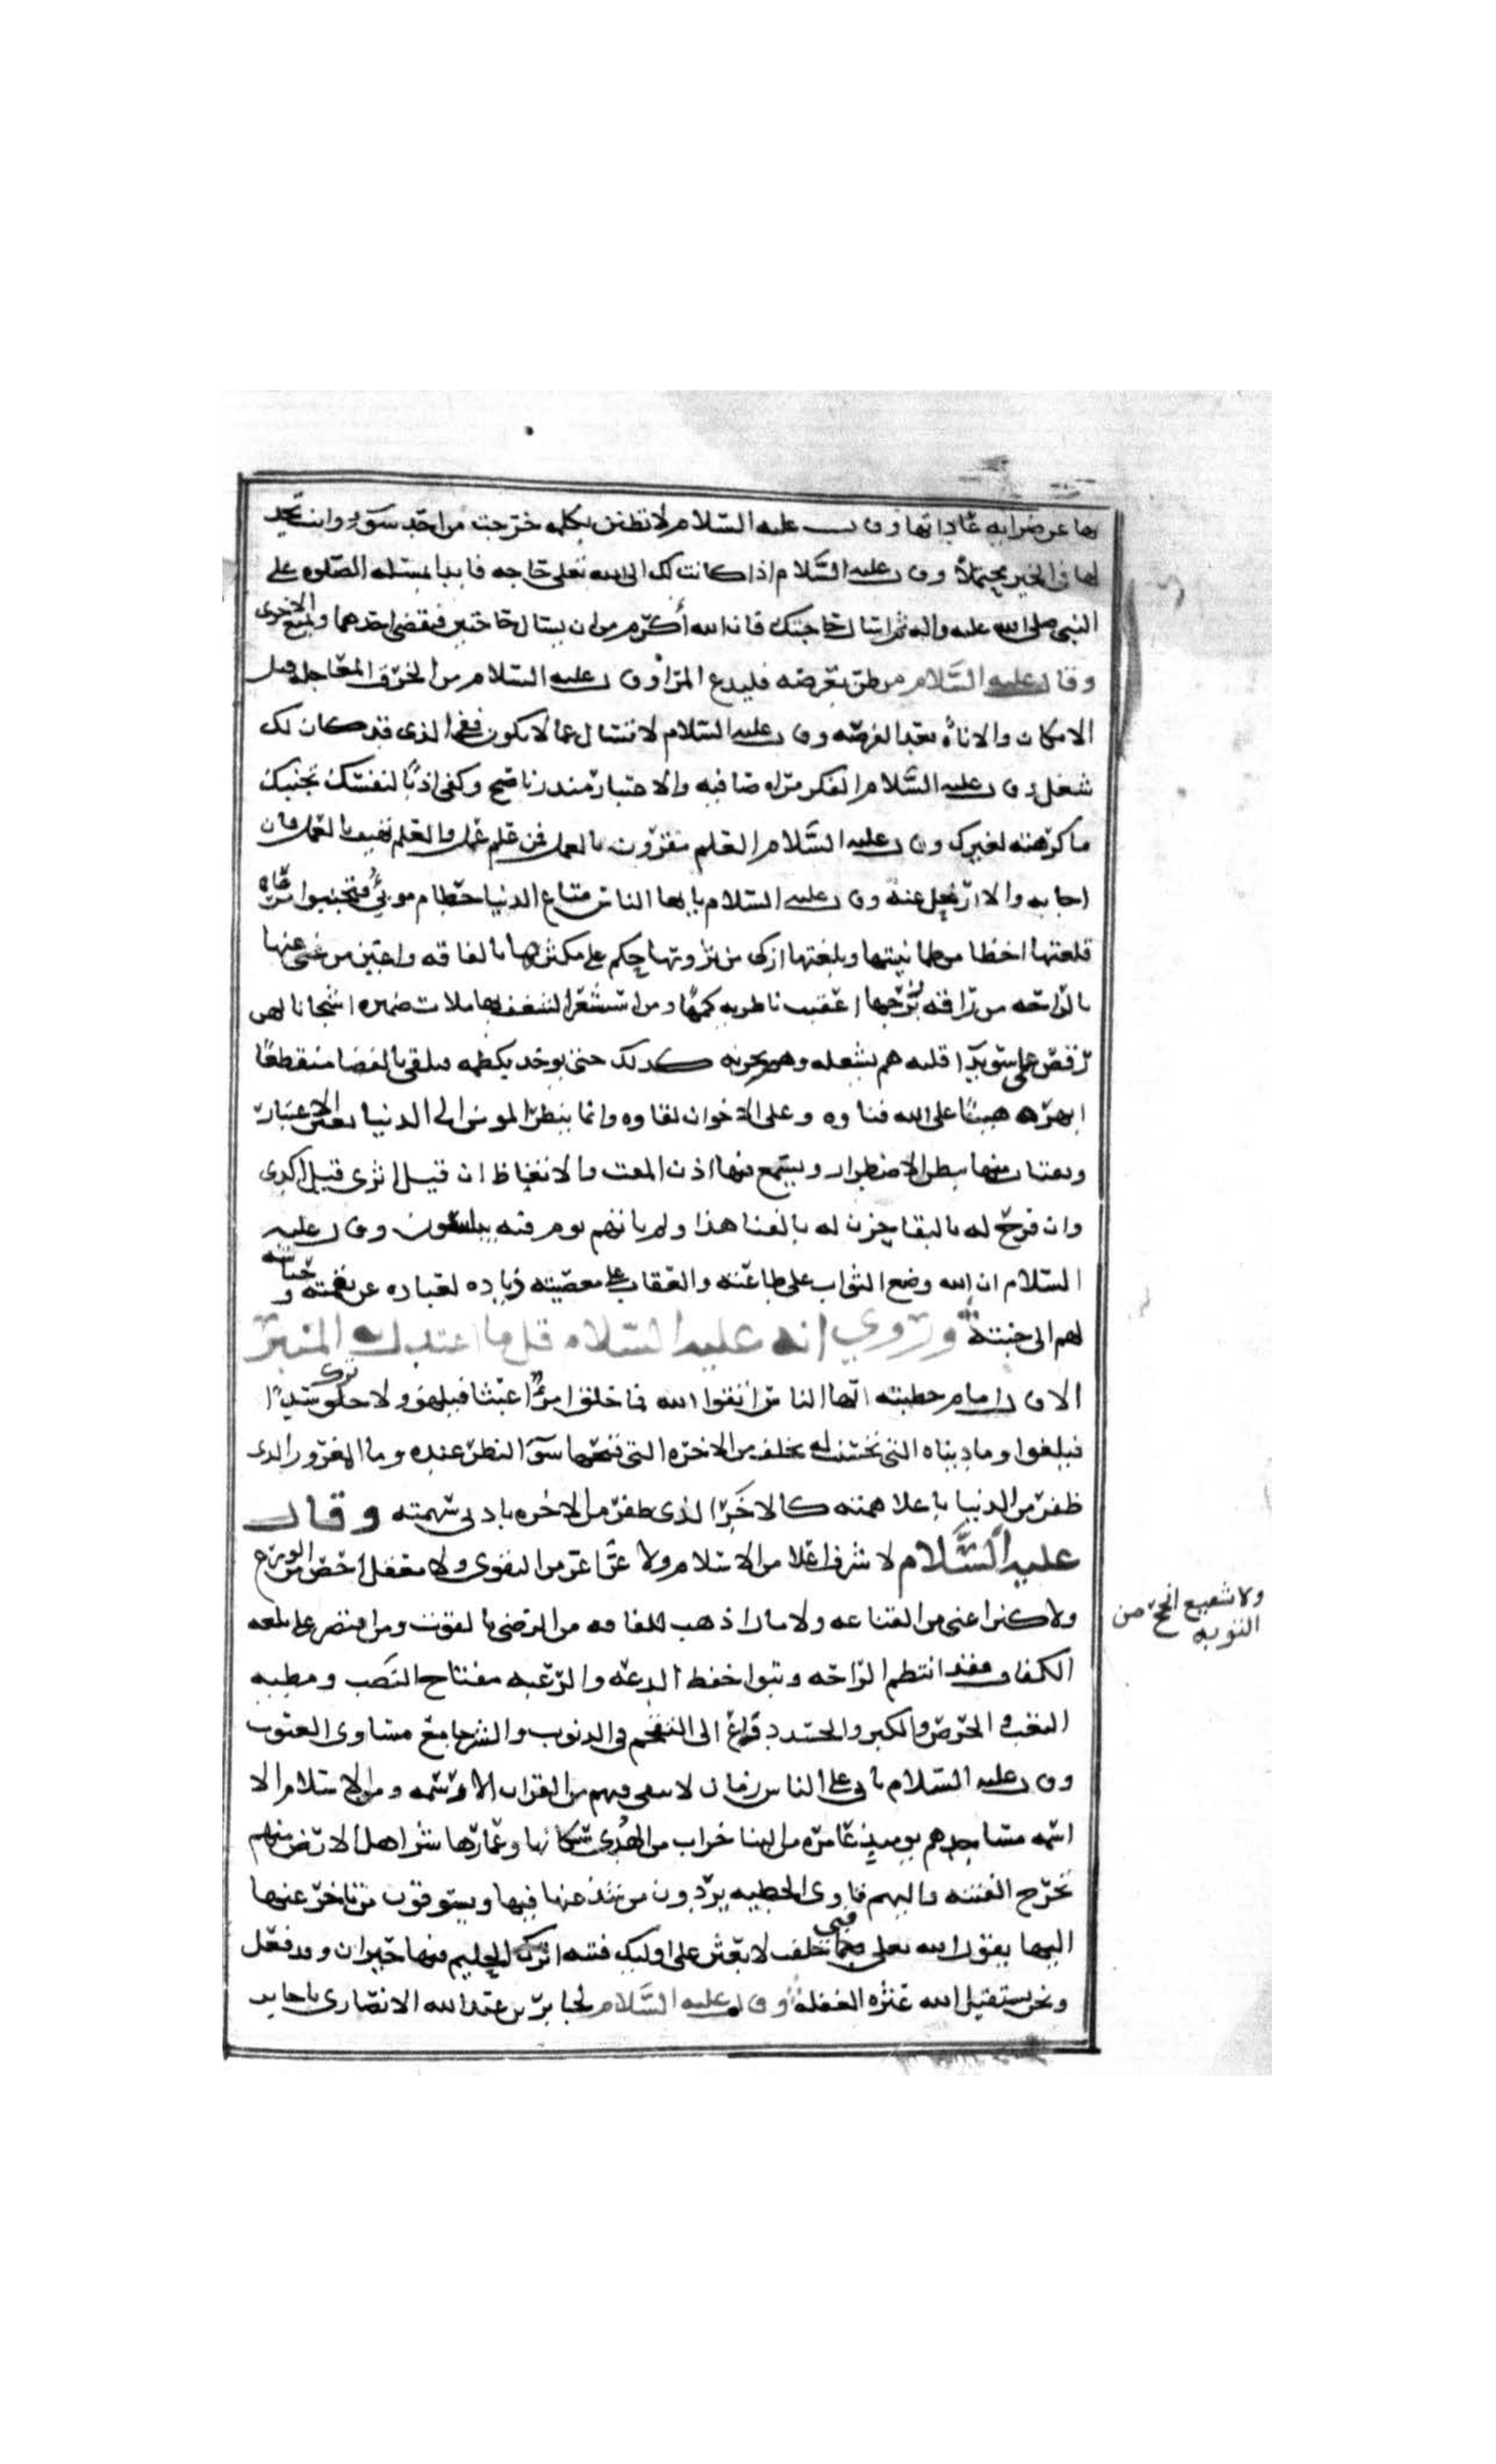 بها عن ضرابه عاداتها وقال عليه السلام لا تظنن بكلمه خرجت من احد سوء وانت تجد
لها في الخير محتملا وقال عليه السلام اذا كانت لك الى الله تعلى حاجه فابدا بمسئله الصلوه على
النبي صلى الله عليه واله ثم اسال حاجتك فان الله أكرم من ان يسال حاجتين فيقضى احدهما ويمنع الاخرى
وقال عليه السلام من ظن بعرضه فليدع المرا وقال عليه السلام من الخرق المعاجله قبل
الامكان والاناة بعد الفرصه وقال عليه السلام لا تسال عما لا يكون ففي الذي قد كان لك
شغل وقال عليه السلام الفكر مراه صافيه والاعتبار منذر ناصح وكفى ادبا لنفسك تجنبك
ما كرهته لغيرك وقال عليه السلام العلم مقرون بالعمل فمن علم عمل والعلم يهتف بالعمل فان
اجابه والا ارتحل عنه وقال عليه السلام يايها الناس متاع الدنيا حطام موبئ فتجنبوا مرعاه
قلعتها احظا من طمانينتها وبلغتها ازكى من ثروتها حكم على مكثريها بالفاقه واعين من غنى عنها
بالراحه من راقه زبرجها اعقبت ناظريه كمها ومن استشعر الشغف بها ملات ضميره اشجانا لهن
رقص على سويدا قلبه هم يشغله وهم يحزنه كذلك حتى يوخذ بكظمه فيلقى بالفضا منقطعا
ابهراه هينا على الله فناوه وعلى الاخوان لقاوه وانما ينظر المومن الى الدنيا بعين الاعتبار
ويقتات منها ببطن الاضطرار ويسمع فيها اذن المقت والابغاض ان قيل اثرى قيل اكدى
وان فرح له بالبقا حزن له بالفنا هذا ولم ياتهم يوم فيه يبلسون وقال عليه
السلام ان الله وضع الثواب على طاعته والعقاب على معصيته ذياده لعباده عن نقمته وحياشه
لهم الى جنته وروي انه عليه السلام قل ما اعتدل به المنبر
الا قال امام خطبته ايها الناس اتقوا الله فما خلق امرؤ عبثا فيلهو ولا ترك سدى
فيلغوا وما دنياه التي تحسنت له بخلف من الاخره التي قبحها سوء النظر عنده وما المغرور الذي
ظفر من الدنيا باعلا همته كالاخر الذي ظفر من الاخره بادنى سهمته وقال
عليه السلام لا شرف اعلا من الاسلام ولا عز اعز من التقوى ولا معقل احصن من الورع
ولا شفيع انجح من
التوبه
ولا كنز اغنى من القناعه ولا مال اذهب للفاقه من الرضى بالقوت ومن اقتصر على بلغه
الكفاف فقد انتظم الراحه وتبوا خفض الدعه والرغبه مفتاح النصب ومطيه
التعب والحرص والكبر والحسد دواع الى التقحم في الذنوب والشر جامع مساوى العيوب
وقال عليه السلام ياتي على الناس زمان لا يبقى فيهم من القران الا رسمه ومن الاسلام الا
اسمه مساجدهم يوميذ عامره من البنا خراب من الهدى سكانها وعمارها شر اهل الارض منهم
تخرج الفتنه واليهم تاوى الخطيه يردون من شذ عنها فيها ويسوقون من تاخر عنها
اليها يقول الله تعلى فبي حلفت لا بعثن على اوليك فتنه اترك الحليم فيها حيران وقد فعل
ونحن نستقيل الله عثره الغفله وقال عليه السلام لجابر بن عبد الله الانصارى يا جابر